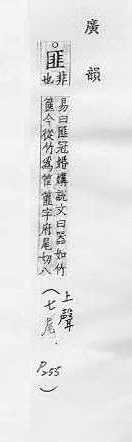 廣韻
匪
非
也
易曰匪寇婚媾說文曰器如竹
篋今從竹爲筐篚字府尾切八
(上聲
七尾.
P.255)